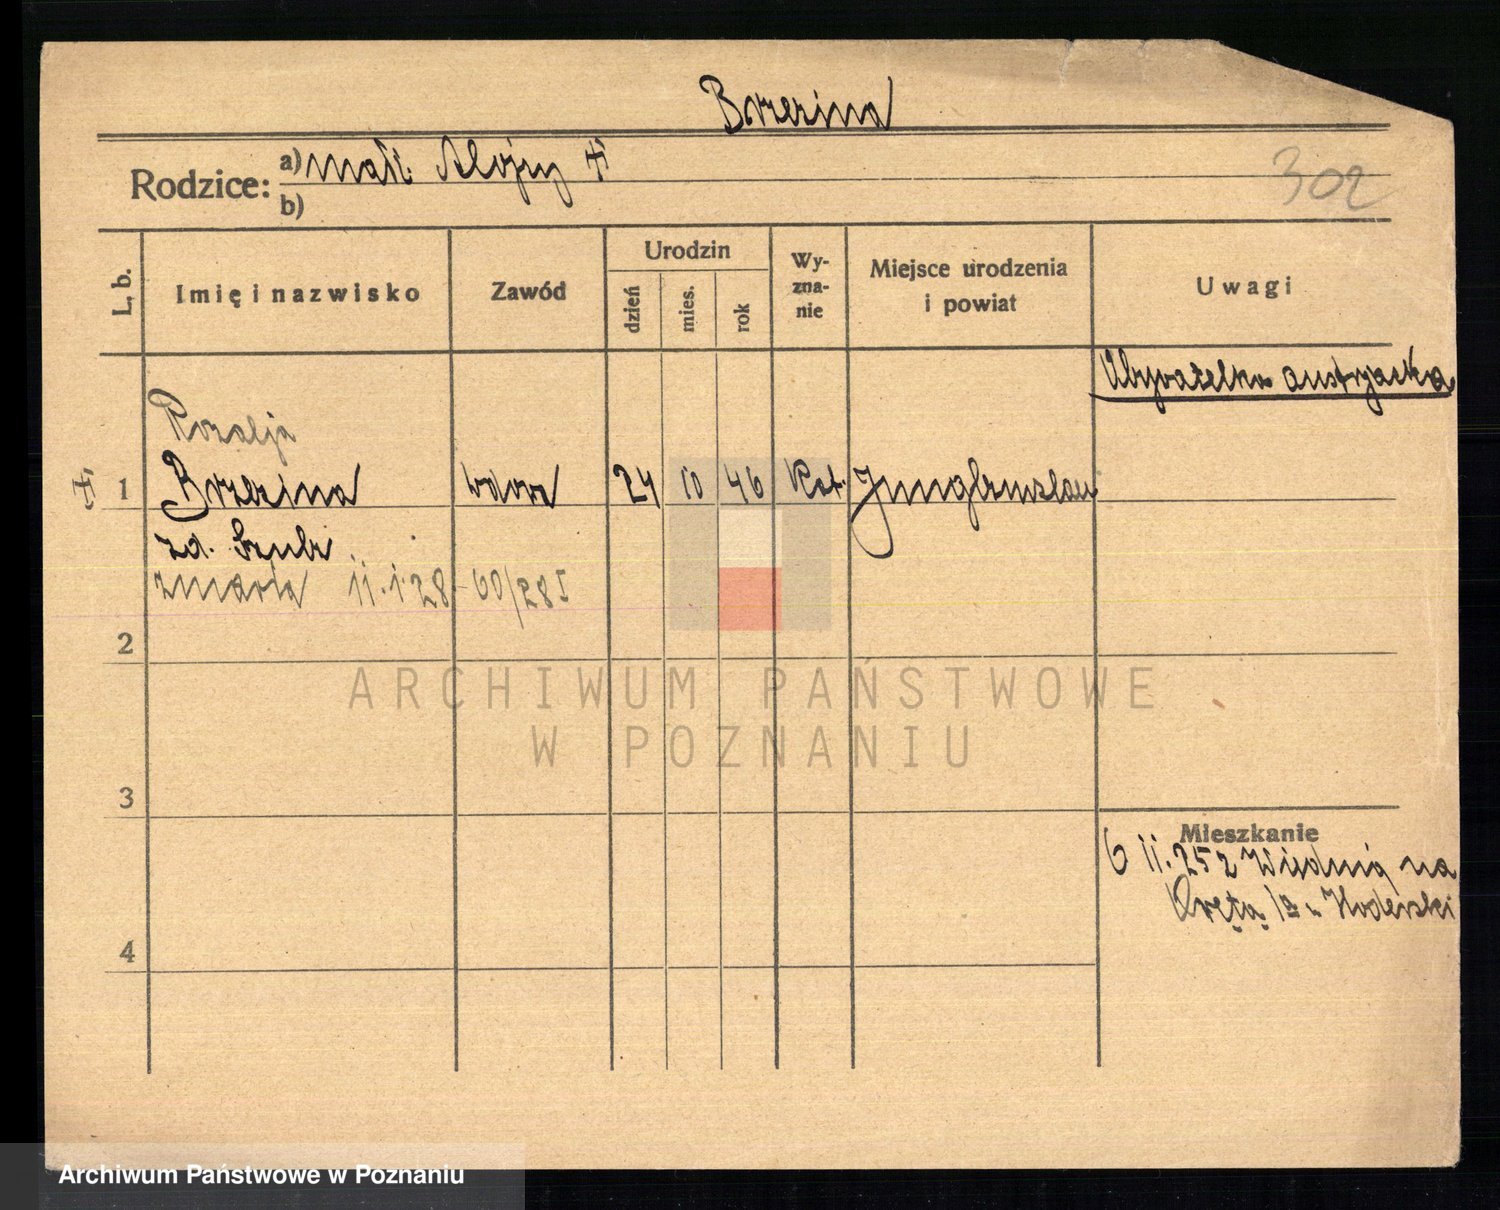 Brzezina
Rodzice: a) Alojzy
b)
302
L. b. Imię i nazwisko Zawód Urodzin dzień mies. rok Wy-zna-nie Miejsce urodzenia i powiat Uwagi
Obywatelka austryacka
Rozalja
1 Brzezina wdowa 24 10 46 Kat. Jungbunzlau
zd. Szulz
zmarła 11.1.28 - 60/28 I
2
ARCHIWUM PAŃSTWOWE
W POZNANIU
3
Mieszkanie
6 11.25 z Wiednia na
Krętą
4
Archiwum Państwowe w Poznaniu